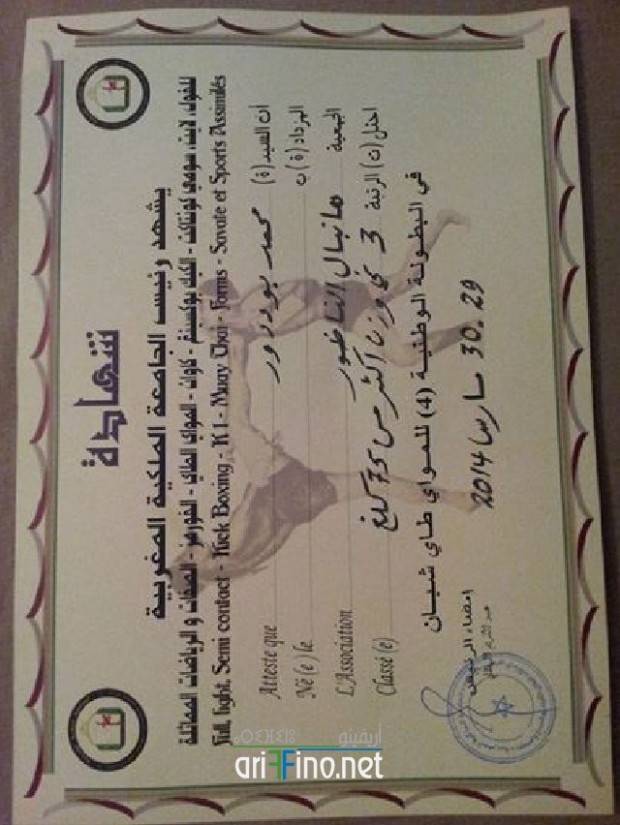 شهادة
يشهد رئيس الجامعة الملكية المغربية
للفول، لايت، سومي كونتاكت - الكيك بوكسينغ - كاوان - المواي الطاي - الفورمز - الصفات و الرياضات المماثلة
Full, light, Semi contact - Kick Boxing - K1 - Muay Thai - Forms - Savate et Sports Assimilés
أن السيد (ة) محمد بودرور Atteste que
المزداد (ة) ب Né (e) le
الجمعية هانيبال الناظور L'Association
احتل (ت) الرتبة 3 في وزن أكثر من 75 كلغ Classé (e)
في البطولة الوطنية (4) للمواي طاي شبان
29. 30 مارس 2014
امضاء الرئيس
أريفينو
ariFFino.net